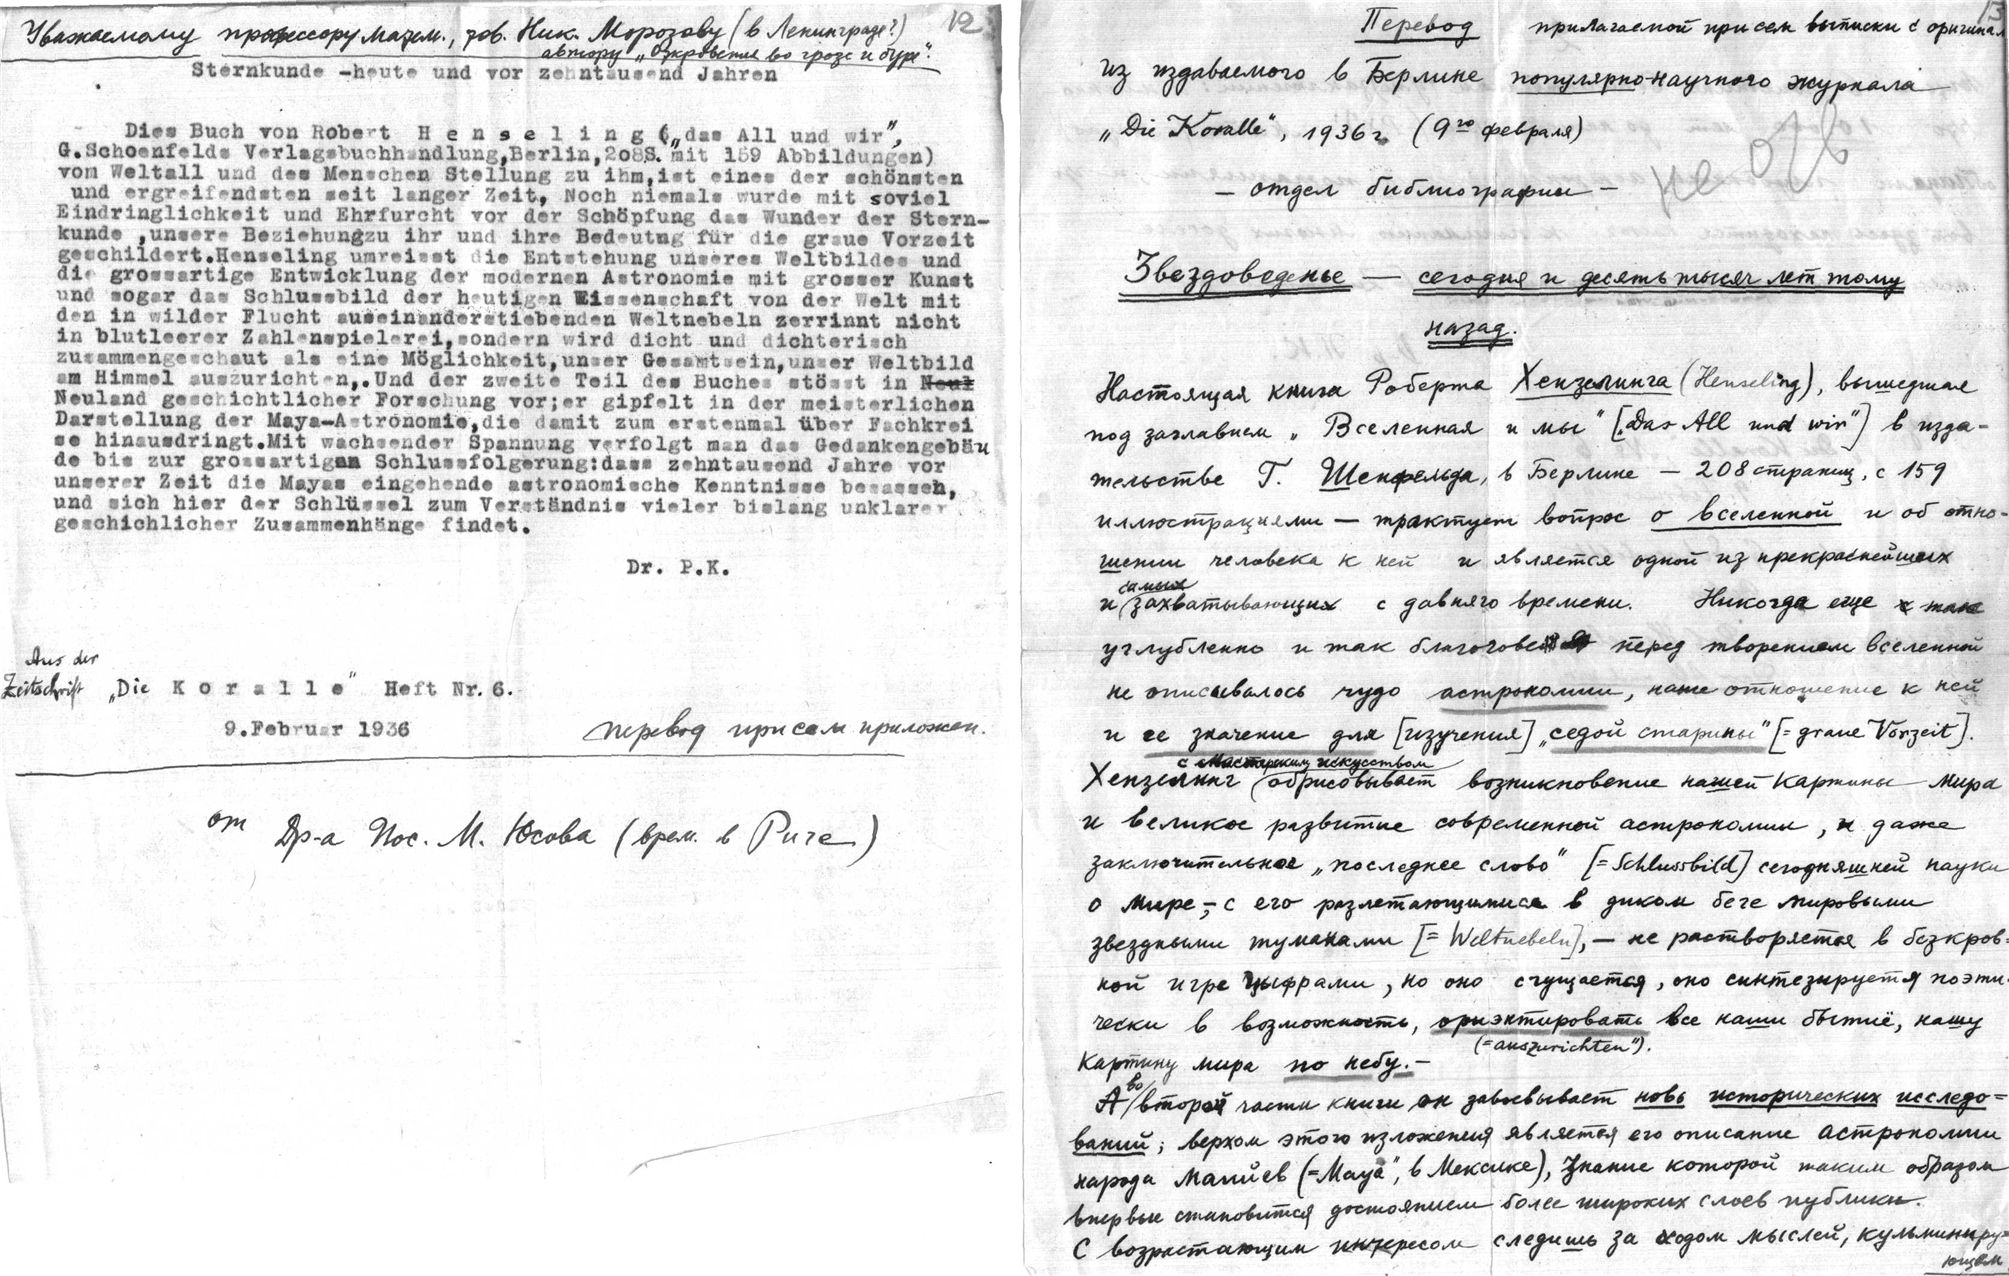 12
Уважаемому профессору матем., тов. Ник. Морозову (в Ленинграде?)
автору „Откровения во грозе и буре“.
Sternkunde -heute und vor zehntausend Jahren
Dies Buch von Robert H e n s e l i n g („das All und wir”,
G.Schoenfelds Verlagsbuchhandlung,Berlin,2o8S. mit 159 Abbildungen)
vom Weltall und des Menschen Stellung zu ihm,ist eines der schönsten
und ergreifendsten seit langer Zeit, Noch niemals wurde mit soviel
Eindringlichkeit und Ehrfurcht vor der Schöpfung das Wunder der Stern-
kunde ,unsere Beziehungzu ihr und ihre Bedeutng für die graue Vorzeit
geschildert.Henseling umreisst die Entstehung unseres Weltbildes und
die grossartige Entwicklung der modernen Astronomie mit grosser Kunst
und sogar das Schlussbild der heutigen Wissenschaft von der Welt mit
den in wilder Flucht auseinanderstiebenden Weltnebeln zerrinnt nicht
in blutleerer Zahlenspielerei,sondern wird dicht und dichterisch
zusammengeschaut als eine Möglichkeit,unser Gesamtsein,unser Weltbild
am Himmel auszurichten,.Und der zweite Teil des Buches stösst in Neul
Neuland geschichtlicher Forschung vor;er gipfelt in der meisterlichen
Darstellung der Maya-Astronomie,die damit zum erstenmal über Fachkrei
se hinausdringt.Mit wachsender Spannung verfolgt man das Gedankengebäu
de bis zur grossartigen Schlussfolgerung:dass zehntausend Jahre vor
unserer Zeit die Mayas eingehende astronomische Kenntnisse besassen,
und sich hier der Schlüssel zum Verständnis vieler bislang unklarer
geschichlicher Zusammenhänge findet.
Dr. P.K.
Aus der
Zeitschrift „Die K o r a l l e” Heft Nr.6.
9.Februar 1936
перевод при сем приложен.
от Др-а Иос. М. Юсова (врем. в Риге)
13
Перевод прилагаемой при сем выписки с оригинала
из издаваемого в Берлине популярно-научного журнала
„Die Koralle“, 1936 г. (9го февраля)
не отв
– отдел библиографии –
Звездоведенье — сегодня и десять тысяч лет тому
назад.
Настоящая книга Роберта Хензелинга (Henseling), вышедшая
под заглавием „Вселенная и мы“ [„Das All und wir“] в изда-
тельстве Г. Шенфельда, в Берлине — 208 страниц, с 159
иллюстрациями — трактует вопрос о вселенной и об отно-
шении человека к ней и является одной из прекраснейших
самых
и захватывающих с давняго времени. Никогда еще так
углубленно и так благоговей перед творением вселенной
не описывалось чудо астрономии, наше отношение к ней
и ее значение для [изучения] „седой старины“ [= graue Vorzeit].
с мастерским искусством
Хензелинг обрисовывает возникновение нашей картины мира
и великое развитие современной астрономии, и даже
заключительное „последнее слово“ [= Schlussbild] сегодняшней науки
о мире,– с его разлетающимися в диком беге мировыми
звездными туманами [= Weltnebeln],– не растворяется в безкров=
ной игре цыфрами, но оно сгущается, оно синтезируется поэти-
чески в возможность, ориэктировать все наши бытиё, нашу
(=auszurichten“).
картину мира по небу.–
во
А второй части книги он завоевывает новь исторических исследо=
ваний; верхом этого изложения является его описание астрономии
народа Малиев (=Maya“, в Мексике), знание которой таким образом
впервые становится достоянием более широких слоев публики.
С возрастающим интересом следишь за ходом мыслей, кульминиру=
ющем